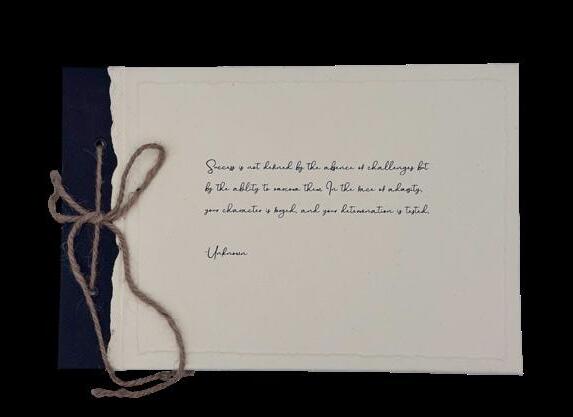 Success is not defined by the absence of challenges but
by the ability to overcome them. In the face of adversity,
your character is forged, and your determination is tested.
-Unknown